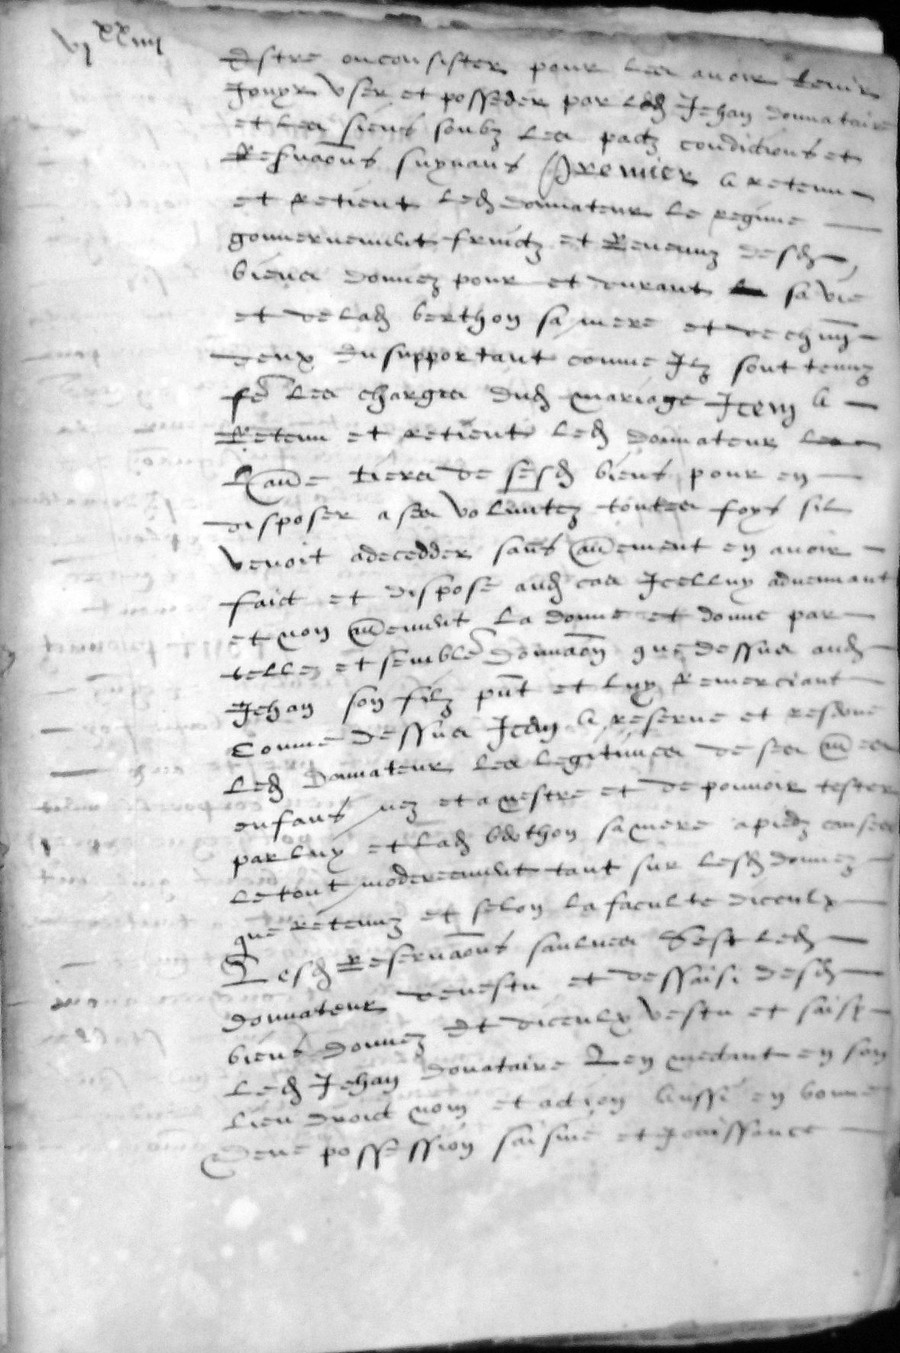 vi xxiiii
Estre ou consister pour les avoir tenir
Jouyr user et posseder par led Jehan donnataire
et les siens soubz les pactz conditions et
Reservaons suyvans Premier a retenu
et retient led donnateur le regime
gouvernement fruictz et Revenuz desd
biens donnez pour et durant sa vie
et de lad berthon sa mere et de chun
deux En supportant comme Ilz sont tenuz
fe les charges dud mariage Item a
Retenu et retient led donnateur
Laue tiers de sesd biens pour en
disposer a ses voluntez toutes foys sil
venoit adecedder sans auement en avoir
faict et dispose aud cas Icelluy advenant
et non auement La donne et donne par
telle et semble donnaon que dessus aud
Jehan son filz pnt et luy Remerciant
Comme dessus Item a reserve et reserve
Led Donnateur les legitimes de ses aues
enfans nez et a nestre et de pouvoir tester
par luy et lad berthon sa mere a piedz causes
Le tout modereement tant sur lesd donnez
que Retenuz et selon la faculte diceulx
Lesd Reservaons saulves Sest led
donnateur devestu et dessaisi desd
biens donnez Et diceulx vestu et saisy
Led Jehan donataire Len mectant en son
lieu droict nom et action Aussi en bonne
Deue possession saisine et jouissance